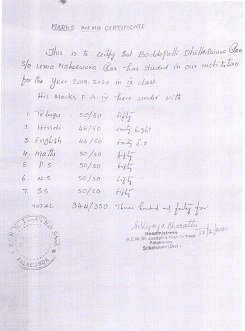 MARKS MEMO CERTIFICATE
This is to certify that Boddepalli Dhilleswara Rao
S/o Uma Maheswara Rao has studied in our institution
for the Year 2019-2020 in ix class
His Marks F.A. iv here under with
1. Telugu 50/50 fifty
2. Hindi 48/50 forty eight
3. English 46/50 forty six
4. Maths 50/50 fifty
5. P.S 50/50 fifty
6. N.S 50/50 fifty
7. S.S 50/50 fifty
TOTAL 344/350 Three hundred and forty four
Headmistress
R.C.M. St. Joseph's High School
Palakonda
Srikakulam (Dist.)
PALAKONDA